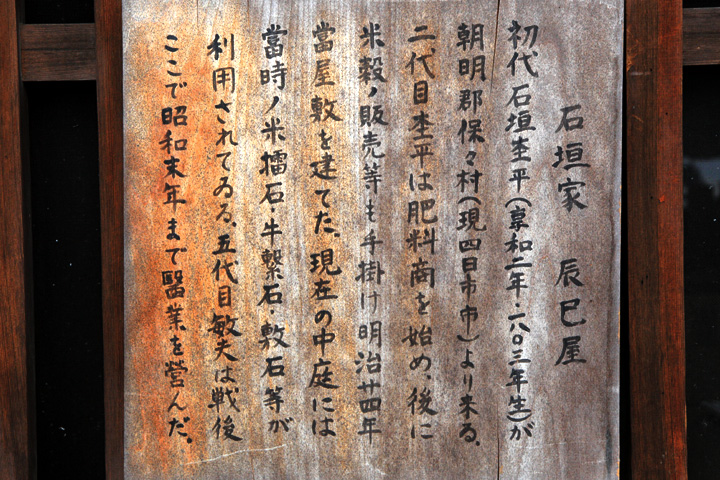 石垣家　辰巳屋
初代石垣杢平(享和二年・一八〇三年生)が
朝明郡保々村(現四日市市)より来る。
二代目杢平は肥料商を始め、後に
米穀ノ販売等も手掛け明治廿四年
當屋敷を建てた。現在の中庭には
當時ノ米擂石・牛繋石・敷石等が
利用されてゐる。五代目敏夫は戦後
ここで昭和末年まで醫業を営んだ。